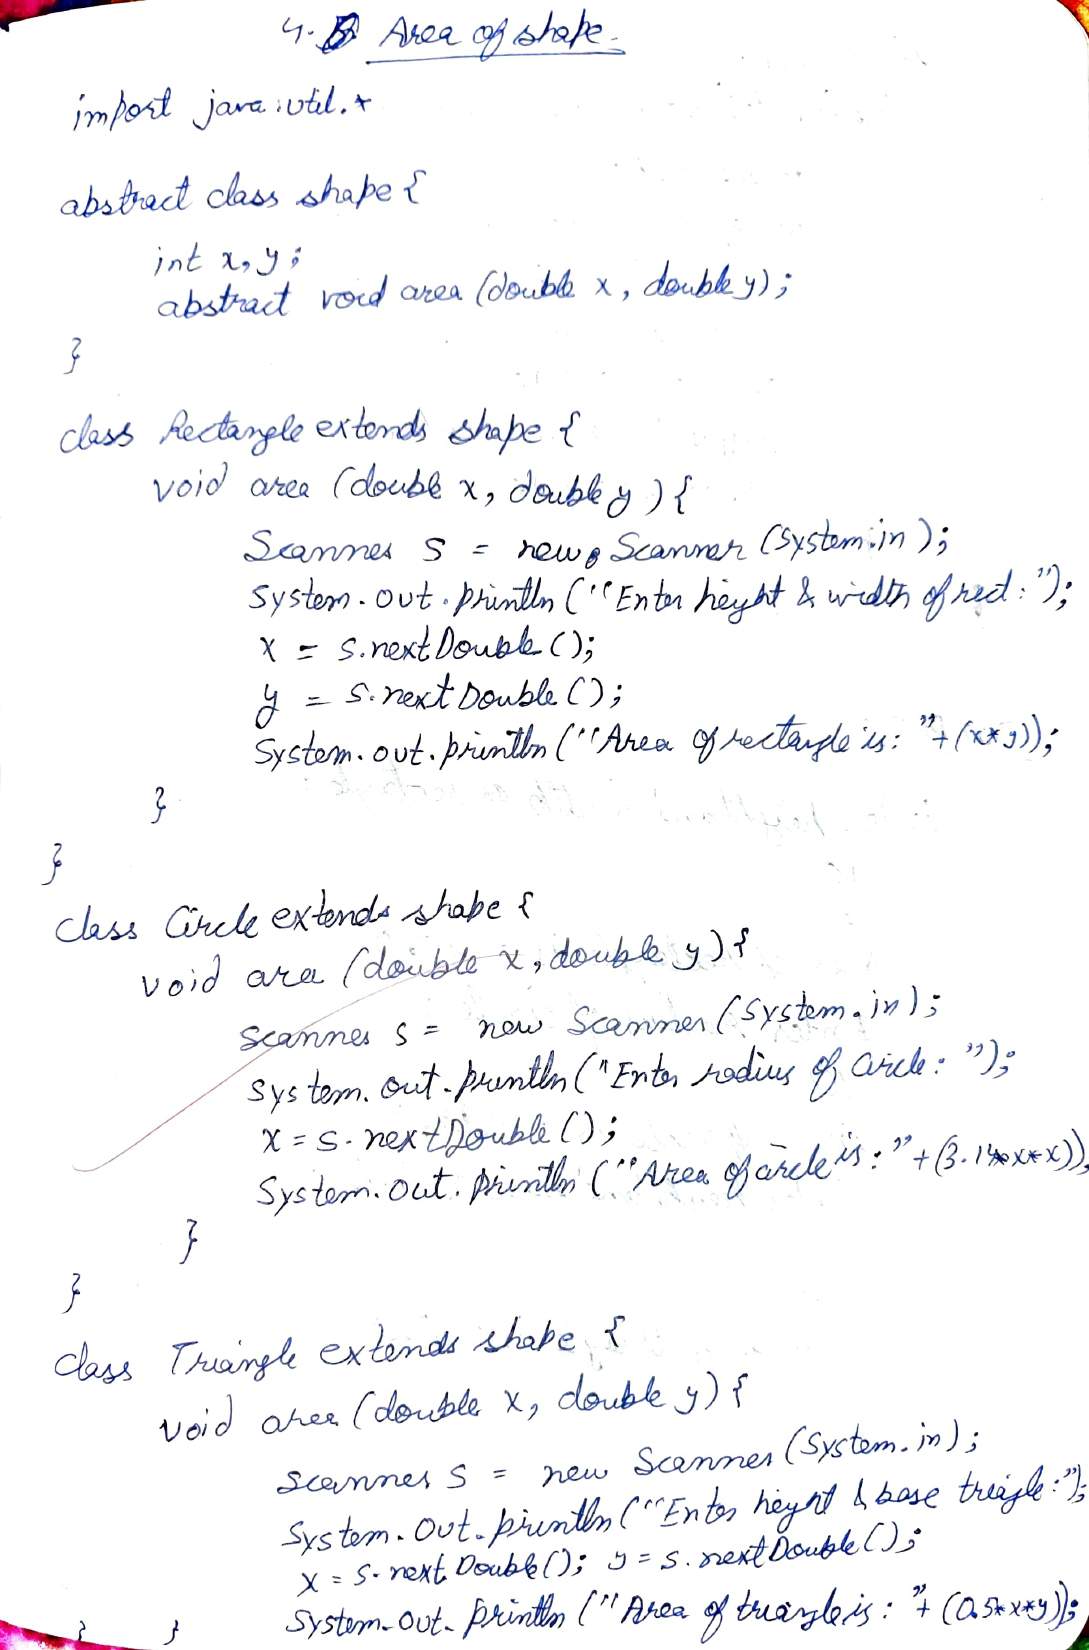 4. Area of shape.
import java.util.*
abstract class shape {
int x, y;
abstract void area (double x, double y);
}
class Rectangle extends shape {
void area (double x, double y) {
Scanner s = new Scanner (System.in);
System.out.println ("Enter height & width of rect: ");
x = s.nextDouble();
y = s.nextDouble();
System.out.println ("Area of rectangle is: "+(x*y));
}
}
class Circle extends shape {
void area (double x, double y) {
Scanner s = new Scanner (System.in);
System.out.println ("Enter radius of circle: ");
x = s.nextDouble();
System.out.println ("Area of circle is: "+(3.14*x*x));
}
}
class Triangle extends shape {
void area (double x, double y) {
Scanner s = new Scanner (System.in);
System.out.println ("Enter height & base treagle:");
x = s.nextDouble(); y = s.nextDouble();
System.out.println ("Area of triangle is: "+ (0.5*x*y));
} }